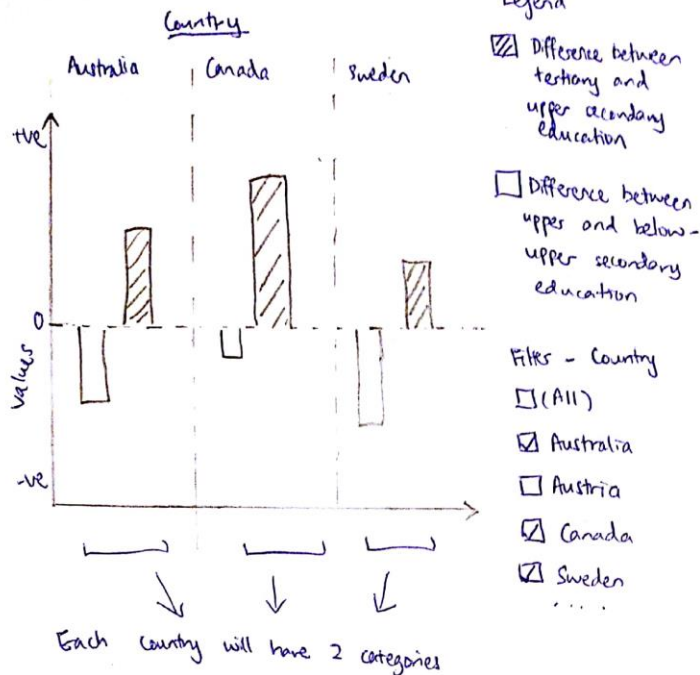 Country
Australia
Canada
Sweden
+ve
0
values
-ve
Each country will have 2 categories
Legend
Difference between
tertiary and
upper secondary
education
Difference between
upper and below-
upper secondary
education
Filter - Country
(All)
Australia
Austria
Canada
Sweden
.....